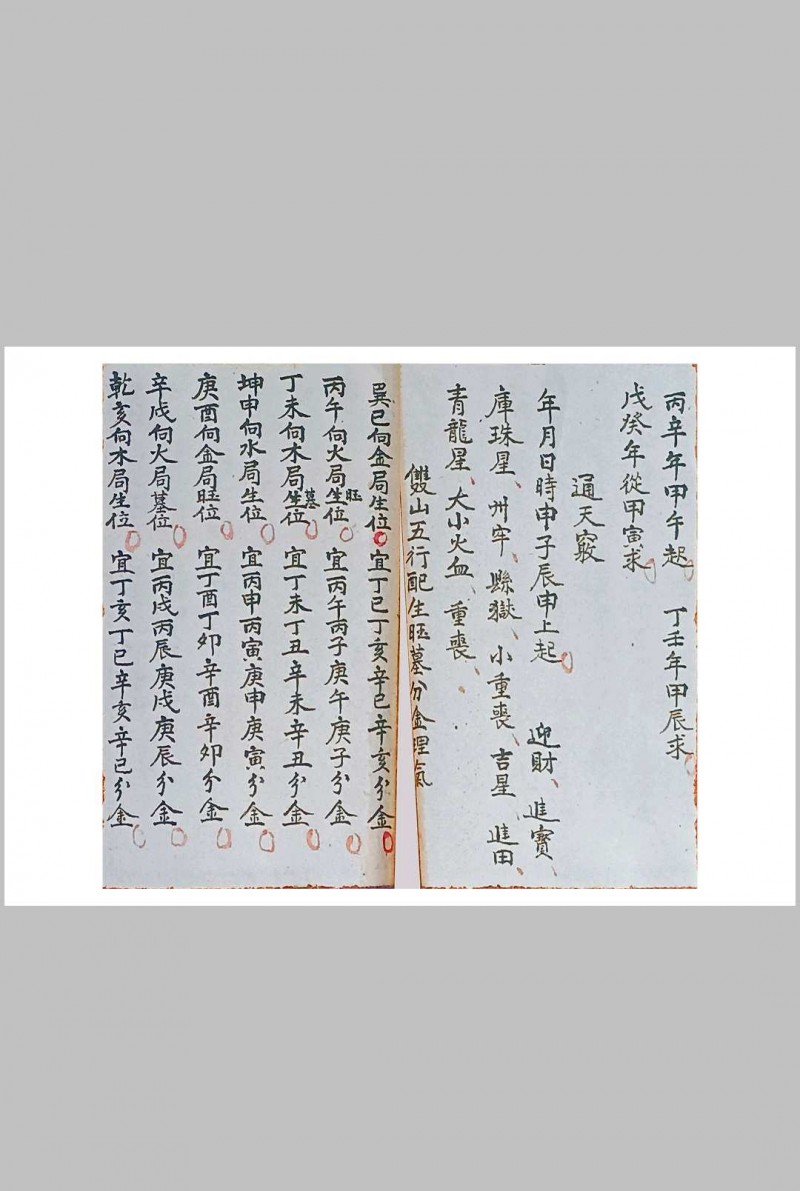 丙辛年甲午起　丁壬年甲辰求
戊癸年從甲寅求
通天竅
年月日時申子辰申上起　迎財、進寶、
庫珠星、州牢、縣獄、小重喪、吉星、進田、
青龍星、大小火血、重喪、
雙山五行配生旺墓分金理氣
巽巳向金局生位　宜丁巳丁亥辛巳辛亥分金
丙午向火局生旺位　宜丙午丙子庚午庚子分金
丁未向木局生墓位　宜丁未丁丑辛未辛丑分金
坤申向水局生位　宜丙申丙寅庚申庚寅分金
庚酉向金局旺位　宜丁酉丁卯辛酉辛卯分金
辛戌向火局墓位　宜丙戌丙辰庚戌庚辰分金
乾亥向木局生位　宜丁亥丁巳辛亥辛巳分金